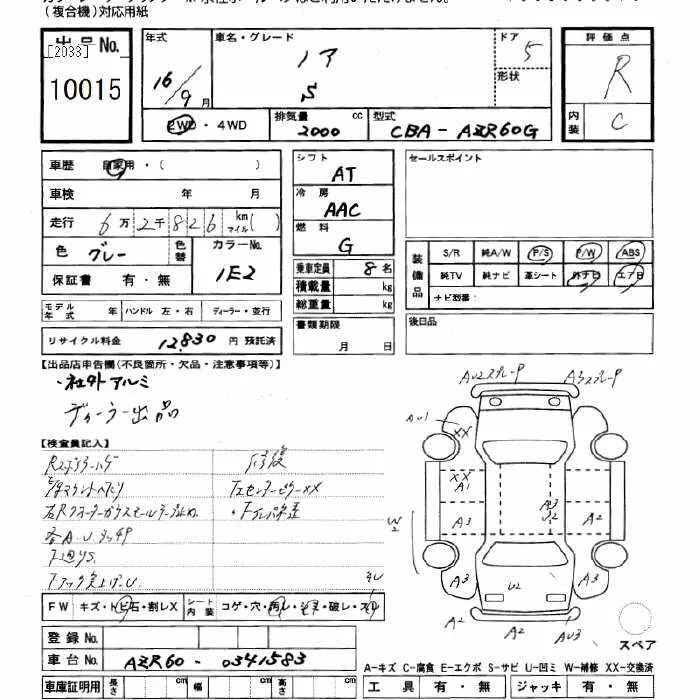 (複合機)対応用紙
出品No.
[2033]
10015
年式
16/9月
車名・グレード
ノア
S
ドア
5
形状
評価点
R
内装
C
2WD・4WD
排気量 cc
2000
型式
CBA-AZR60G
車歴 自家用・( )
車検 年 月
走行 6万2千826km マイル( )
色 グレー
色替
カラーNo.
1E2
保証書 有・無
シフト
AT
冷房
AAC
燃料
G
乗車定員 8名
積載量 kg
総重量 kg
書類期限
月 日
セールスポイント
装備品
S/R 純A/W P/S P/W ABS
純TV 純ナビ 革シート 外ナビ エアB
ナビ型番:
後日品
モデル年式 年
ハンドル 左・右
ディーラー・並行
リサイクル料金 12,830円 預託済
【出品店申告欄(不良箇所・欠品・注意事項等)】
・社外アルミ
ディーラー出品
【検査員記入】
F修復
FセンターピラーXX
各A.U
FW キズ・トビ石・割レX
シート内装 コゲ・穴・汚レ・シミ・破レ・スレ
登録No.
車台No. AZR60-0341583
車庫証明用 長さ cm 幅 cm 高さ cm
AU2スプレーP
A3スプレーP
AU1
XX
XX
A1
A3
W2
A3
U2
A2
A3
A3
U2
A2
A2
AU3
スペア
A-キズ C-腐食 E-エクボ S-サビ U-凹ミ W-補修 XX-交換済
工具 有・無 ジャッキ 有・無